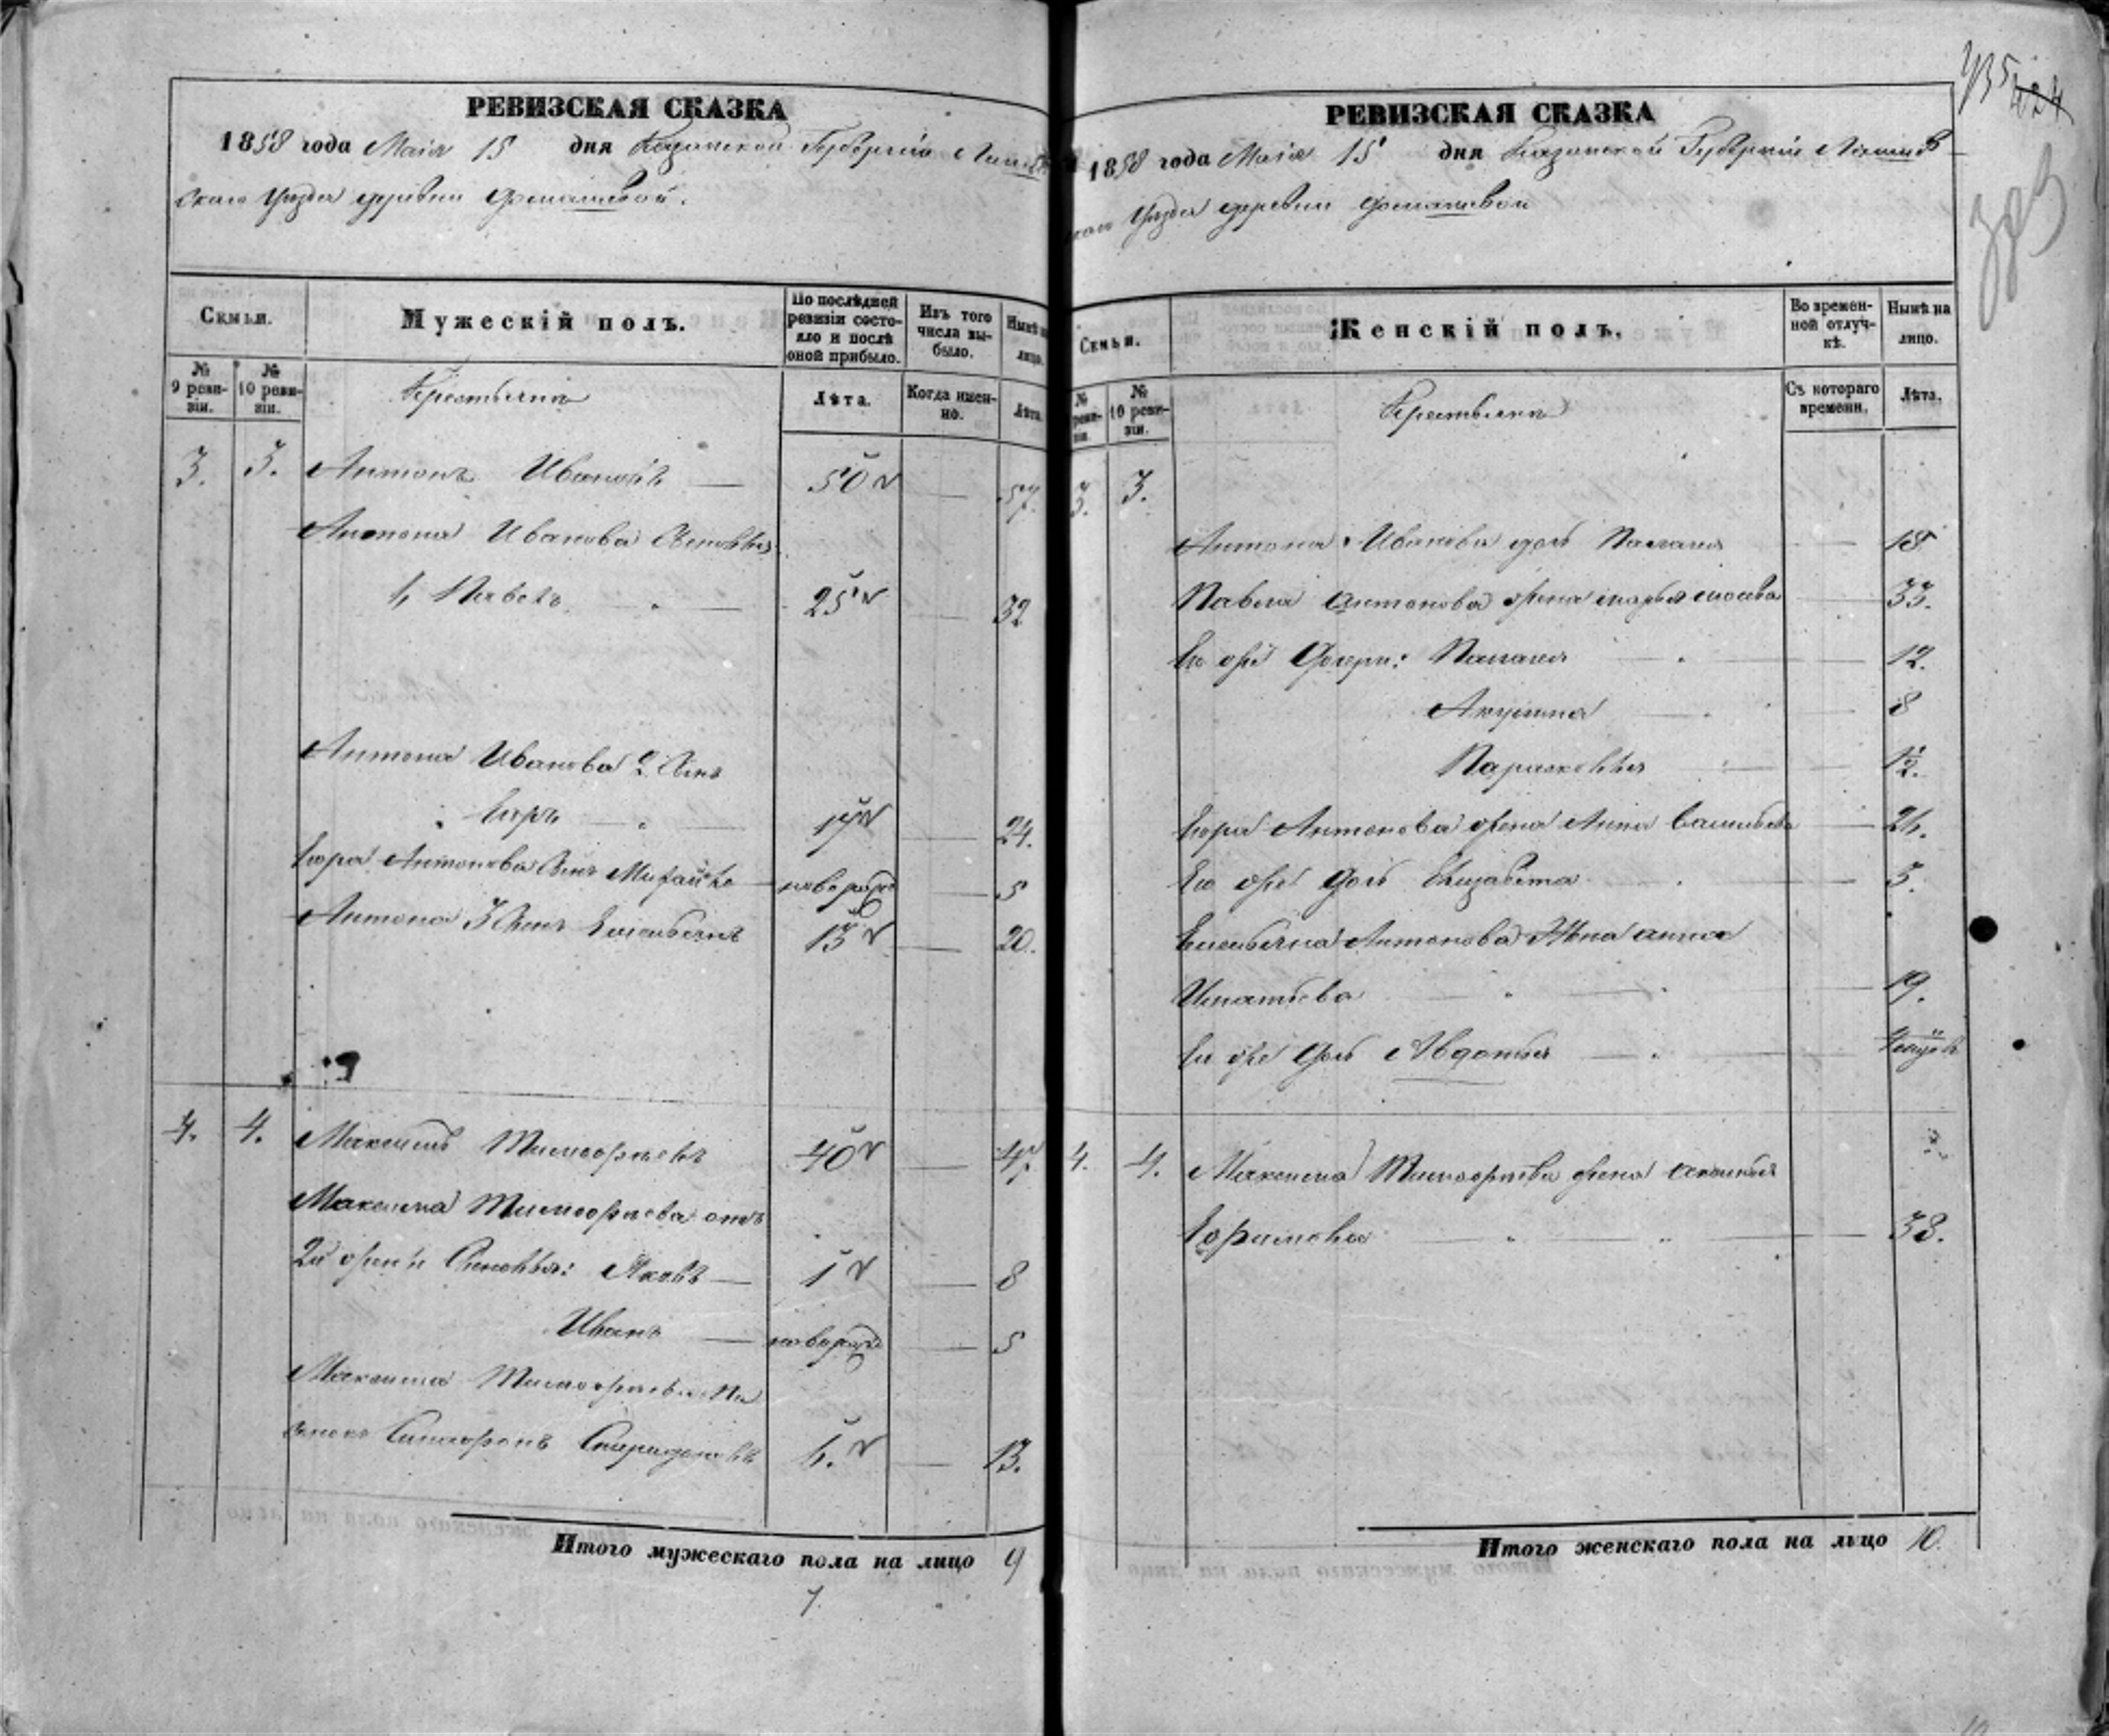 РЕВИЗСКАЯ СКАЗКА
1858 года Маія 15 дня Казанской Губерніи Лаишев
скаго Уезда деревни Фомашевой.
Семьи.
№ 9 ревизіи.
№ 10 ревизіи.
Мужескій полъ.
По послѣдней ревизіи состояло и послѣ оной прибыло.
Изъ того числа выбыло.
Нынѣ на лицо.
Лѣта.
Когда именно.
Лѣта.
Крестьяна
3. 3. Антонъ Ивановъ — 50 — 57.
Антона Иванова Сыновья
1, Павелъ — 25 — 32
Антона Иванова 2. Сынъ
Егоръ — 17 — 24.
Егора Антонова Сынъ Михайло новорож — 5
Антона 3 Сынъ Емельянъ 13 — 20.
4. 4. Максимъ Тимофѣевъ 40 — 47.
Максима Тимофѣева отъ
2й жены Сыновья: Яковъ — 1 — 8
Иванъ — новорож — 5
Максима Тимофѣева Па
сынокъ Спиридоновъ 6. — 13.
Итого мужескаго пола на лицо 9
7.
435 424
РЕВИЗСКАЯ СКАЗКА
1858 года Маія 15 дня Казанской Губерніи Лаишев
скаго Уезда деревни Фомашевой
Семьи.
№ ревизіи.
№ 10 ревизіи.
Женскій полъ.
Во временной отлучкѣ.
Нынѣ на лицо.
Съ котораго времени.
Лѣта.
Крестьяна
3. 3.
Антона Иванова дочь Палагея — 18
Павла Антонова жена Марья — 33.
Ево же Дочери: Палагея — 12.
Акулина — 8
Парасковья — 1/2.
Егора Антонова жена Анна Васильева — 24.
Ево же Дочь Елизавета — 3.
Емельяна Антонова Жена Анна
Игнатьева — 19.
Ево же Дочь Авдотья —
4. 4. Максима Тимофѣева жена
Ефимова — 38.
Итого женскаго пола на лицо 10.